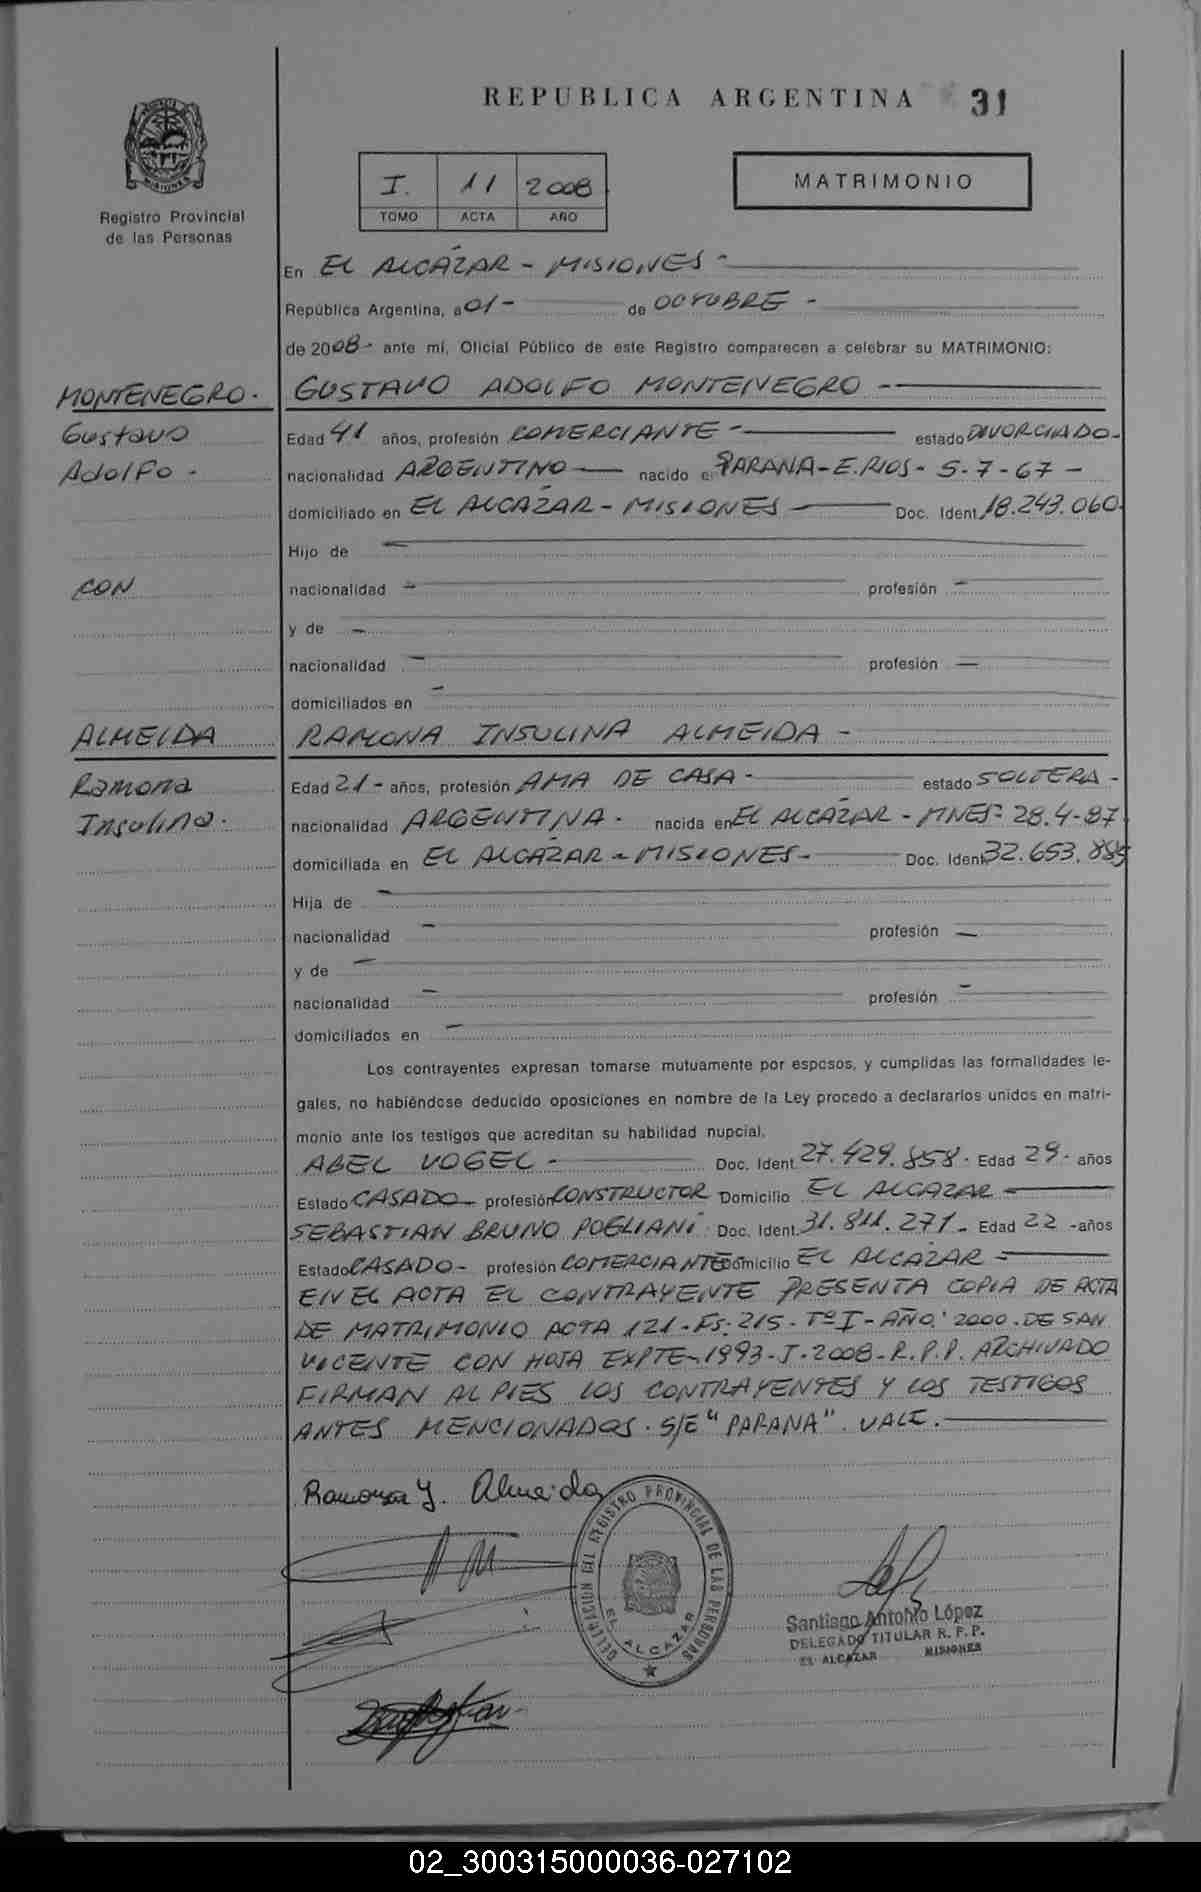 REPUBLICA ARGENTINA 31
MISIONES
Registro Provincial
de las Personas
I. 11 2008
TOMO ACTA AÑO
MATRIMONIO
En EL ALCÁZAR - MISIONES -
República Argentina, a 01 - de OCTUBRE -
de 2008 - ante mí, Oficial Público de este Registro comparecen a celebrar su MATRIMONIO:
MONTENEGRO. GUSTAVO ADOLFO MONTENEGRO -
Gustavo Edad 41 años, profesión COMERCIANTE - estado DIVORCIADO -
Adolfo - nacionalidad ARGENTINO - nacido en PARANA - E. RIOS - 5-7-67 -
domiciliado en EL ALCÁZAR - MISIONES - Doc. Ident. 18.243.060.
Hijo de -
CON nacionalidad - profesión -
y de -
nacionalidad - profesión -
domiciliados en -
ALMEIDA RAMONA INSULINA ALMEIDA -
Ramona Edad 21 - años, profesión AMA DE CASA - estado SOLTERA -
Insulina. nacionalidad ARGENTINA. nacida en EL ALCÁZAR - MNES - 28.4-87
domiciliada en EL ALCÁZAR - MISIONES - Doc. Ident. 32.653.885
Hija de -
nacionalidad - profesión -
y de -
nacionalidad - profesión -
domiciliados en -
Los contrayentes expresan tomarse mutuamente por esposos, y cumplidas las formalidades le-
gales, no habiéndose deducido oposiciones en nombre de la Ley procedo a declararlos unidos en matri-
monio ante los testigos que acreditan su habilidad nupcial.
ABEL VOGEL - Doc. Ident. 27.429.858. Edad 29 - años
Estado CASADO - profesión CONSTRUCTOR Domicilio EL ALCAZAR -
SEBASTIAN BRUNO POGLIANI Doc. Ident. 31.811.271 - Edad 22 - años
Estado CASADO - profesión COMERCIANTE Domicilio EL ALCÁZAR -
EN EL ACTA EL CONTRAYENTE PRESENTA COPIA DE ACTA
DE MATRIMONIO ACTA 121 - Fs. 215 - Tº I - AÑO: 2000 - DE SAN
VICENTE CON HOJA EXPTE - 1993 - J - 2008 - R.P.P. ARCHIVADO
FIRMAN AL PIES LOS CONTRAYENTES Y LOS TESTIGOS
ANTES MENCIONADOS. S/E "PARANA". VALE. -
Ramona Y. Almeida
DELEGACION DEL REGISTRO PROVINCIAL DE LAS PERSONAS
EL ALCAZAR
Santiago Antonio López
DELEGADO TITULAR R. P. P.
EL ALCAZAR MISIONES
02_300315000036-027102